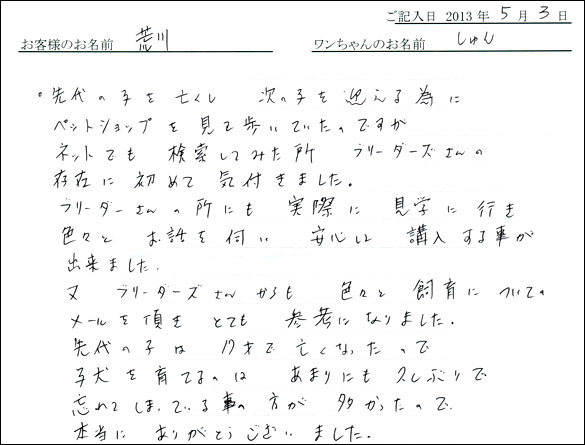 ご記入日 2013 年 5 月 3 日
お客様のお名前 荒川 ワンちゃんのお名前 しゅん
・先代の子を亡くし 次の子を迎える為に
ペットショップを見て歩いていたのですが
ネットでも 検索してみた所 ブリーダーズさんの
存在に初めて気付きました。
ブリーダーさんの所にも 実際に 見学に行き
色々と お話を伺い 安心して 購入する事が
出来ました。
又 ブリーダーズさんからも 色々と飼育についての
メールを頂き とても 参考になりました。
先代の子は 17才で亡くなったので
子犬を育てるのは あまりにも久しぶりで
忘れてしまっている事の方が多かったので
本当に ありがとうございました。